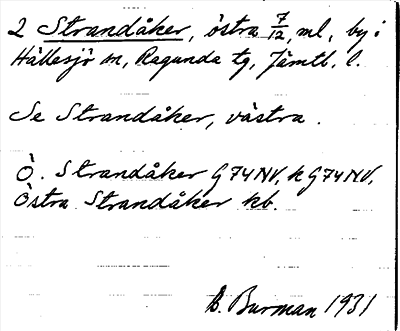 2 Strandåker, östra 7/12 ml, by i
Hällesjö sn, Ragunda tg, Jämtl. l.
Se Strandåker, västra.
Ö. Strandåker G74NV, k G74NV,
Östra Strandåker kb.
B. Burman 1931